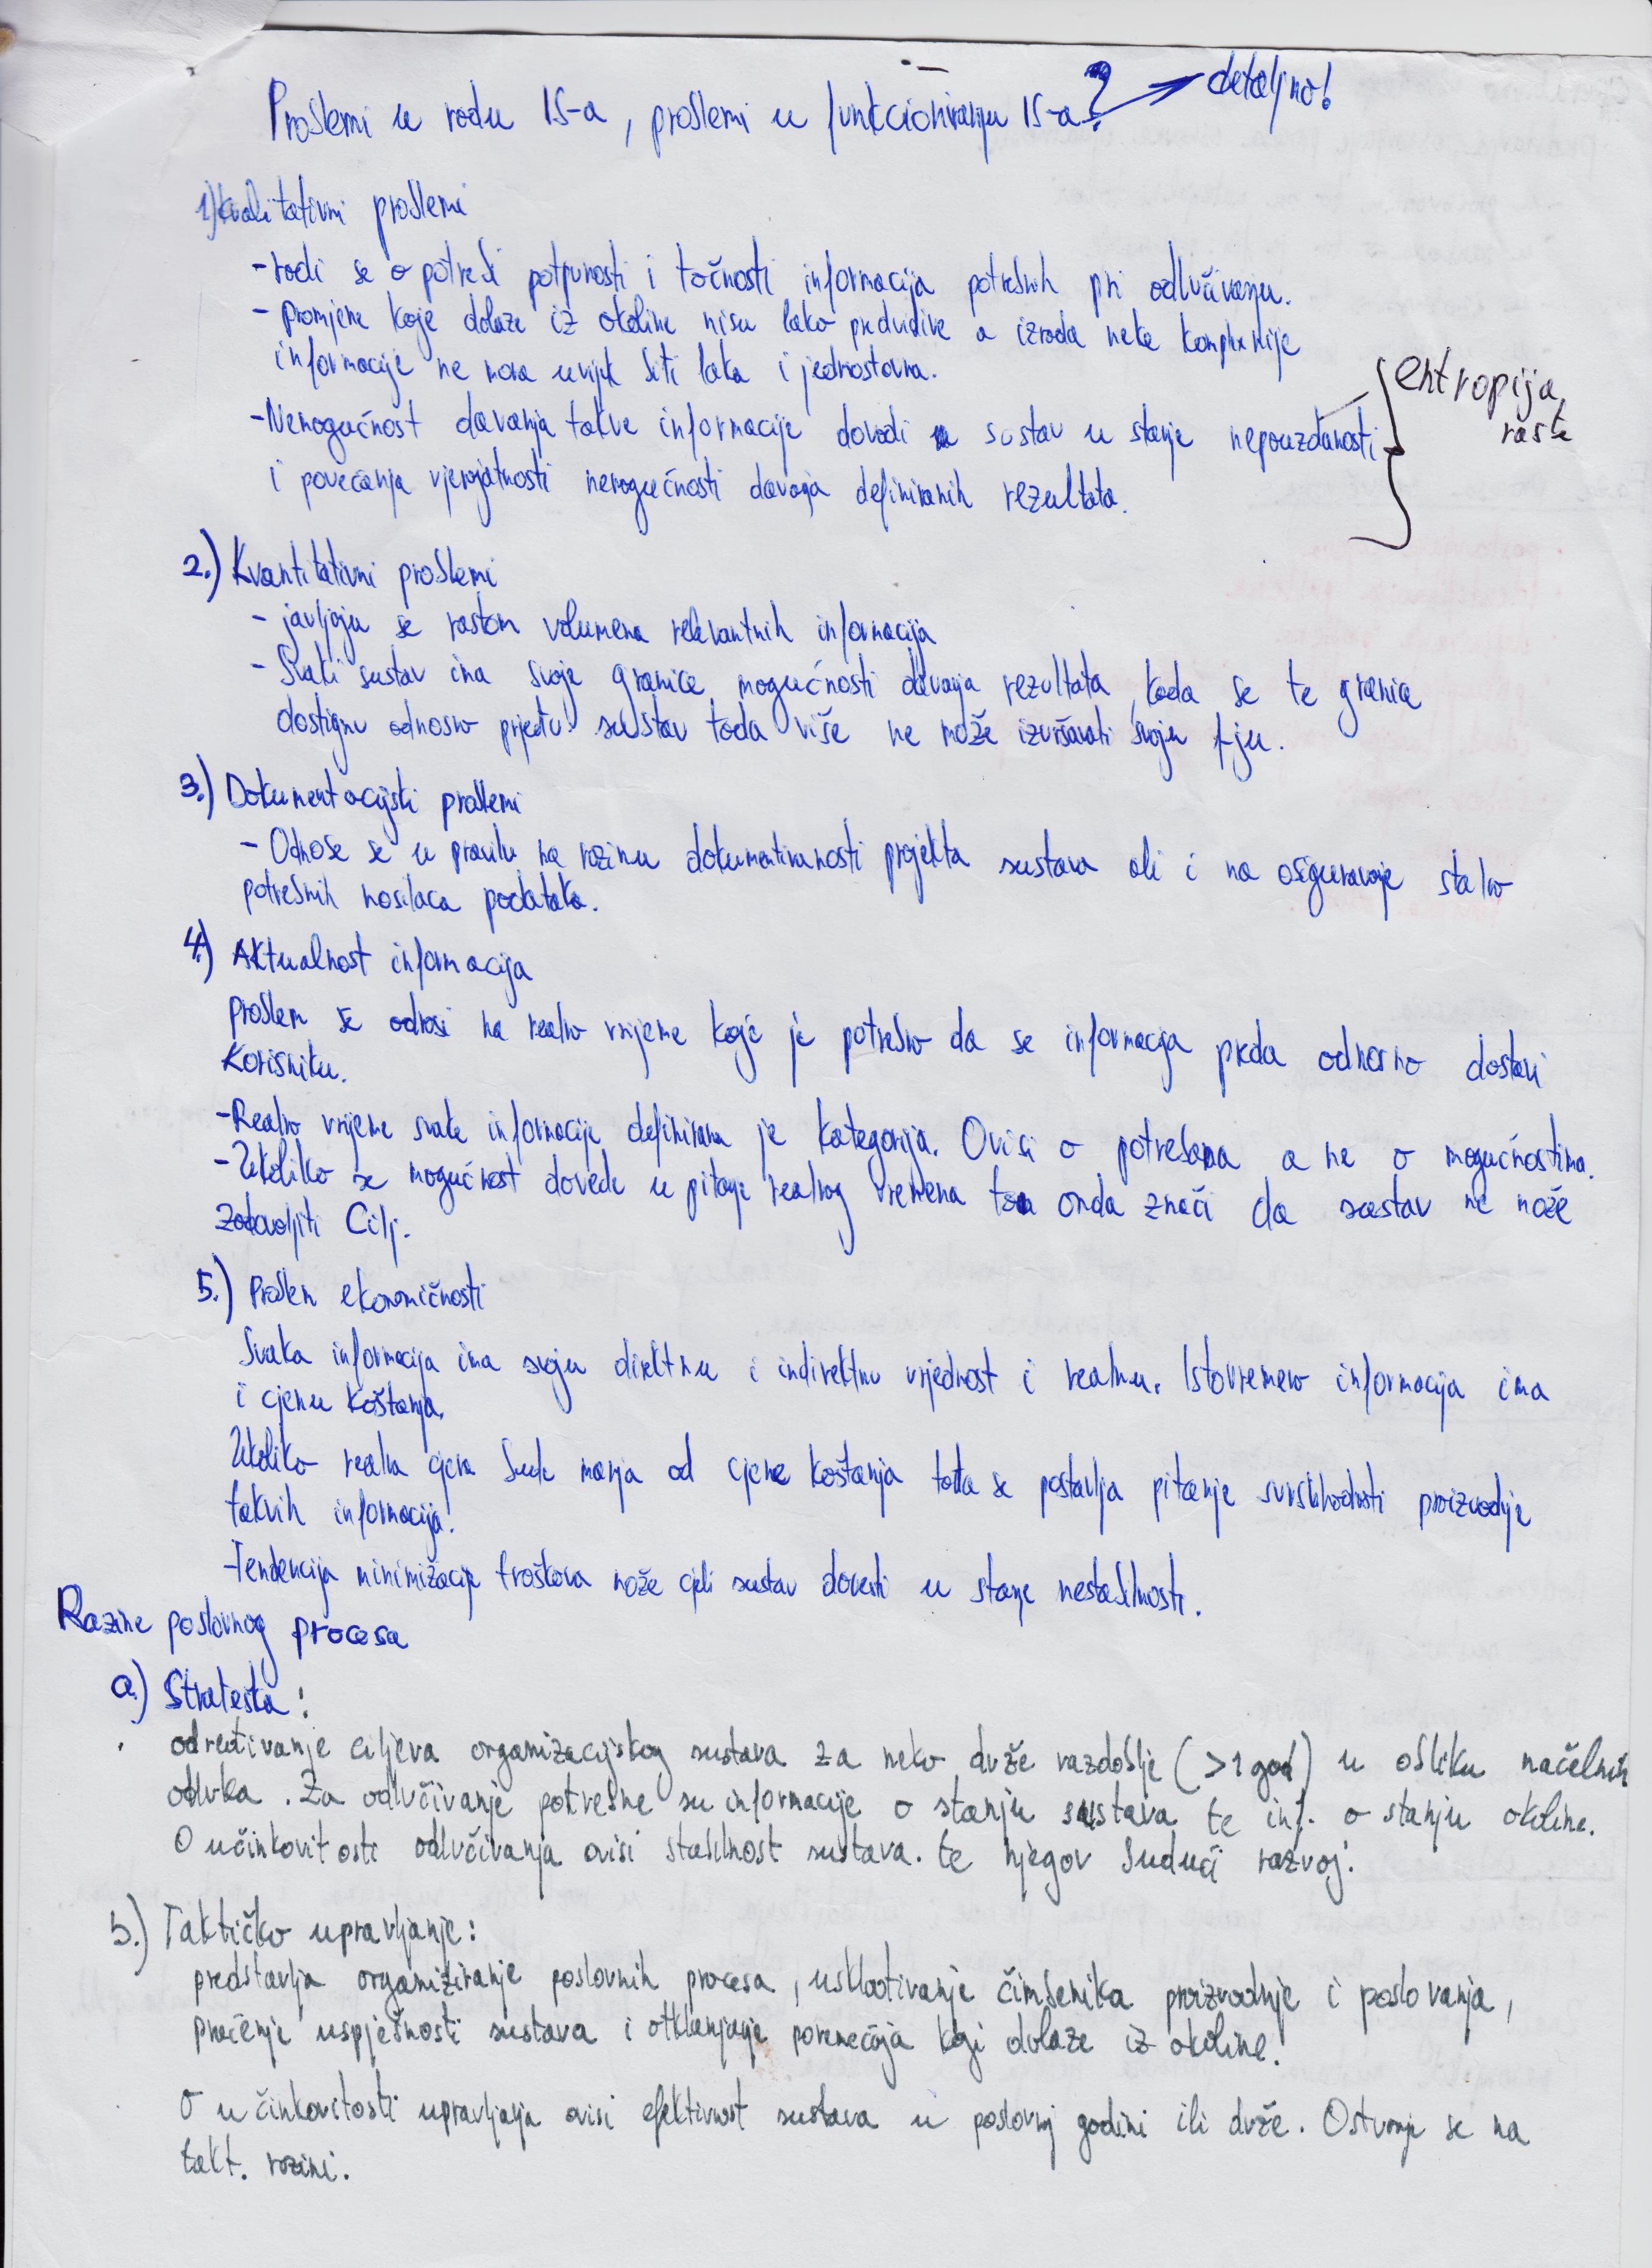 Problemi u radu IS-a, problemi u funkcioniranju IS-a? → detaljno!
1) Kvalitativni problemi
- radi se o potrebi potpunosti i točnosti informacija potrebnih pri odlučivanju.
- promjene koje dolaze iz okoline nisu lako predvidive a izrada neke kompleksnije
informacije ne mora uvijek biti laka i jednostavna.
- Nemogućnost davanja takve informacije dovodi sustav u stanje nepouzdanosti
i povećanja vjerojatnosti nemogućnosti davanja definiranih rezultata.
entropija
raste
2.) Kvantitativni problemi
- javljaju se rastom volumena relevantnih informacija
- Svaki sustav ima svoje granice mogućnosti davanja rezultata, kada se te granice
dostignu odnosno prijeđu sustav tada više ne može izvršavati svoju f-ju.
3.) Dokumentacijski problemi
- Odnose se u pravilu na razinu dokumentiranosti projekta sustava ali i na osiguravanje stalno
potrebnih nosilaca podataka.
4.) Aktualnost informacija
problem se odnosi na realno vrijeme koje je potrebno da se informacija preda odnosno dostavi
Korisniku.
- Realno vrijeme svake informacije definirana je kategorija. Ovisi o potrebama a ne o mogućnostima.
- Ukoliko se mogućnost dovede u pitanje realnog vremena onda znači da sustav ne može
zadovoljiti Cilj.
5.) Problem ekonomičnosti
Svaka informacija ima svoju direktnu i indirektnu vrijednost i realnu. Istovremeno informacija ima
i cjenu koštanja.
Ukoliko realna cjena bude manja od cjene koštanja tada se postavlja pitanje svrsishodnosti proizvodnje
takvih informacija!
- Tendencija minimizacije troškova može cjeli sustav dovesti u stanje nestabilnosti.
Razine poslovnog procesa
a) Strateška:
određivanje ciljeva organizacijskog sustava za neko duže razdoblje (>1 god) u obliku načelnih
odluka. Za odlučivanje potrebne su informacije o stanju sustava te inf. o stanju okoline.
O učinkovitosti odlučivanja ovisi stabilnost sustava. te njegov budući razvoj.
b.) Taktičko upravljanje:
predstavlja organiziranje poslovnih procesa, usklađivanje čimbenika proizvodnje i poslovanja,
praćenje uspješnosti sustava i otklanjanje poremećaja koji dolaze iz okoline!
O učinkovitosti upravljanja ovisi efektivnost sustava u poslovnoj godini ili duže. Ostvaruje se na
takt. razini.